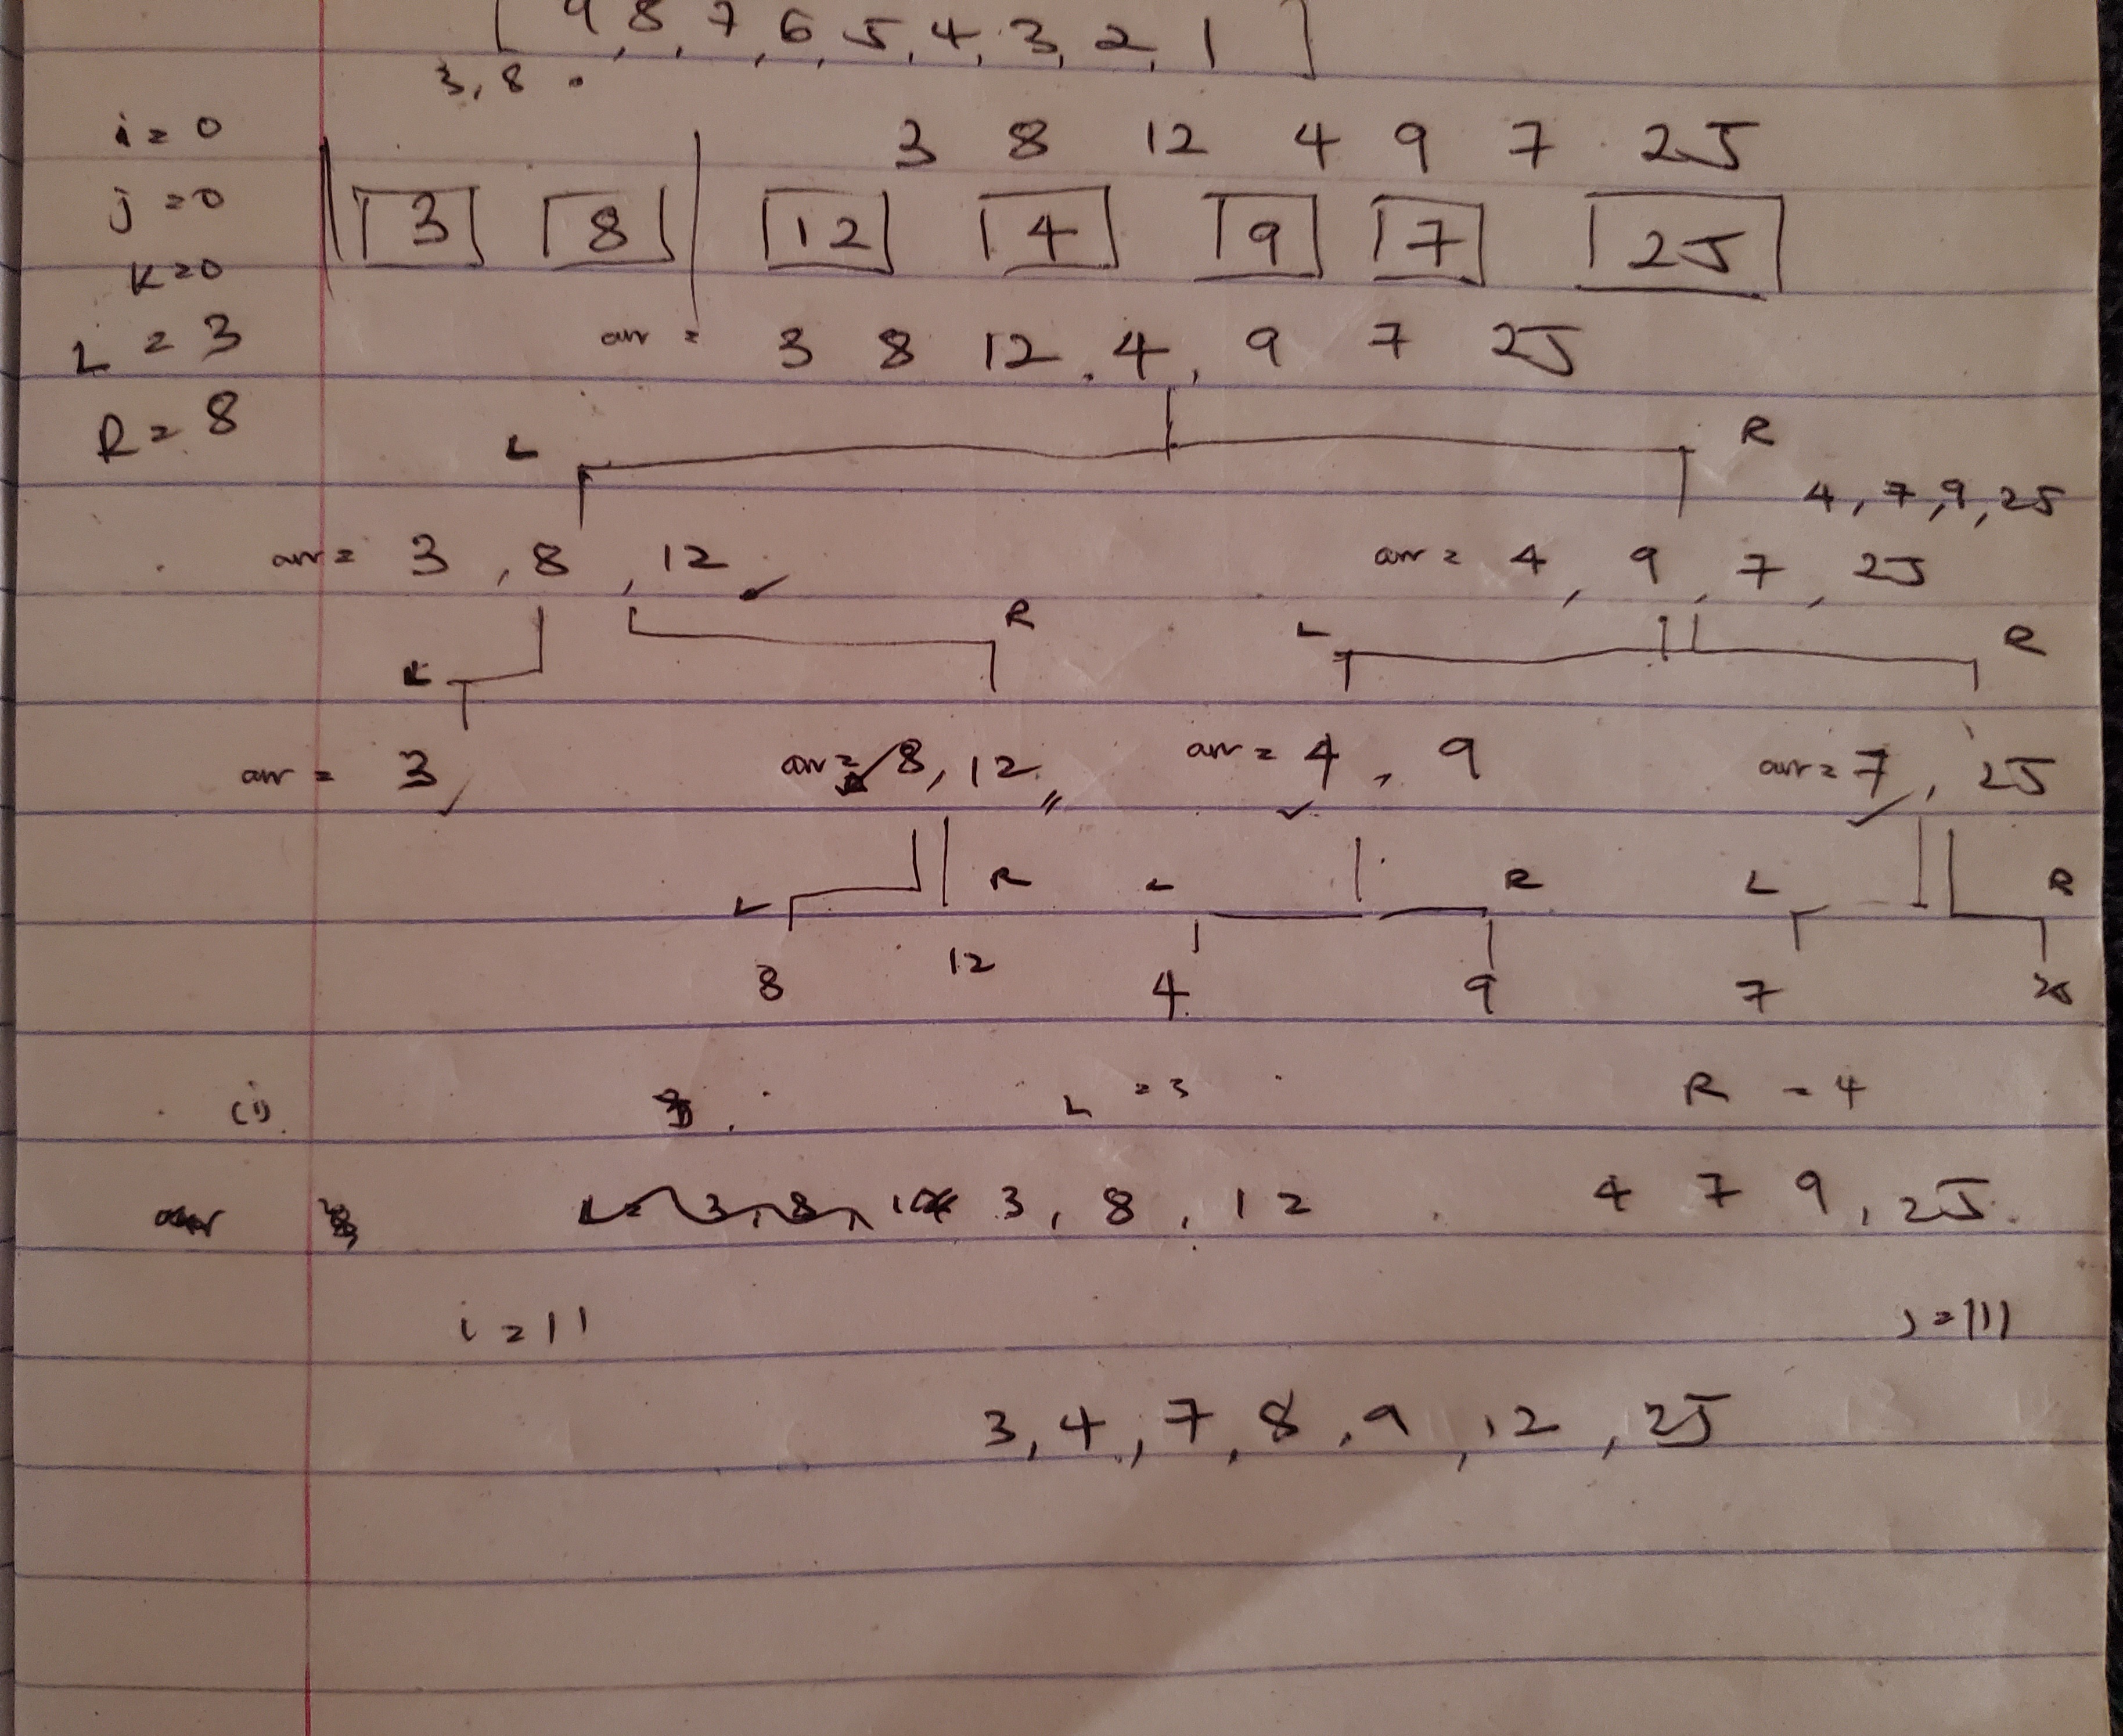 [ 9, 8, 7, 6, 5, 4, 3, 2, 1 ]
3, 8
i = 0 3 8 12 4 9 7 25
j = 0 3 8 12 4 9 7 25
k = 0
L = 3 arr = 3 8 12, 4, 9 7 25
R = 8
L R
4, 7, 9, 25
arr = 3, 8, 12 arr = 4, 9, 7, 25
L R L R
arr = 3 arr = 8, 12 arr = 4, 9 arr = 7, 25
L R L R L R
8 12 4 9 7 25
(i) L = 3 R = 4
3, 8, 12 4 7 9, 25
i = 11 j = 111
3, 4, 7, 8, 9, 12, 25